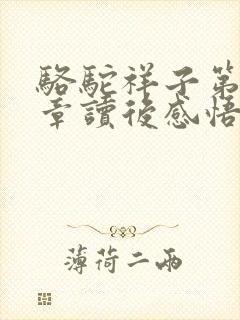 駱駝祥子第
章讀後感悟
薄荷二兩